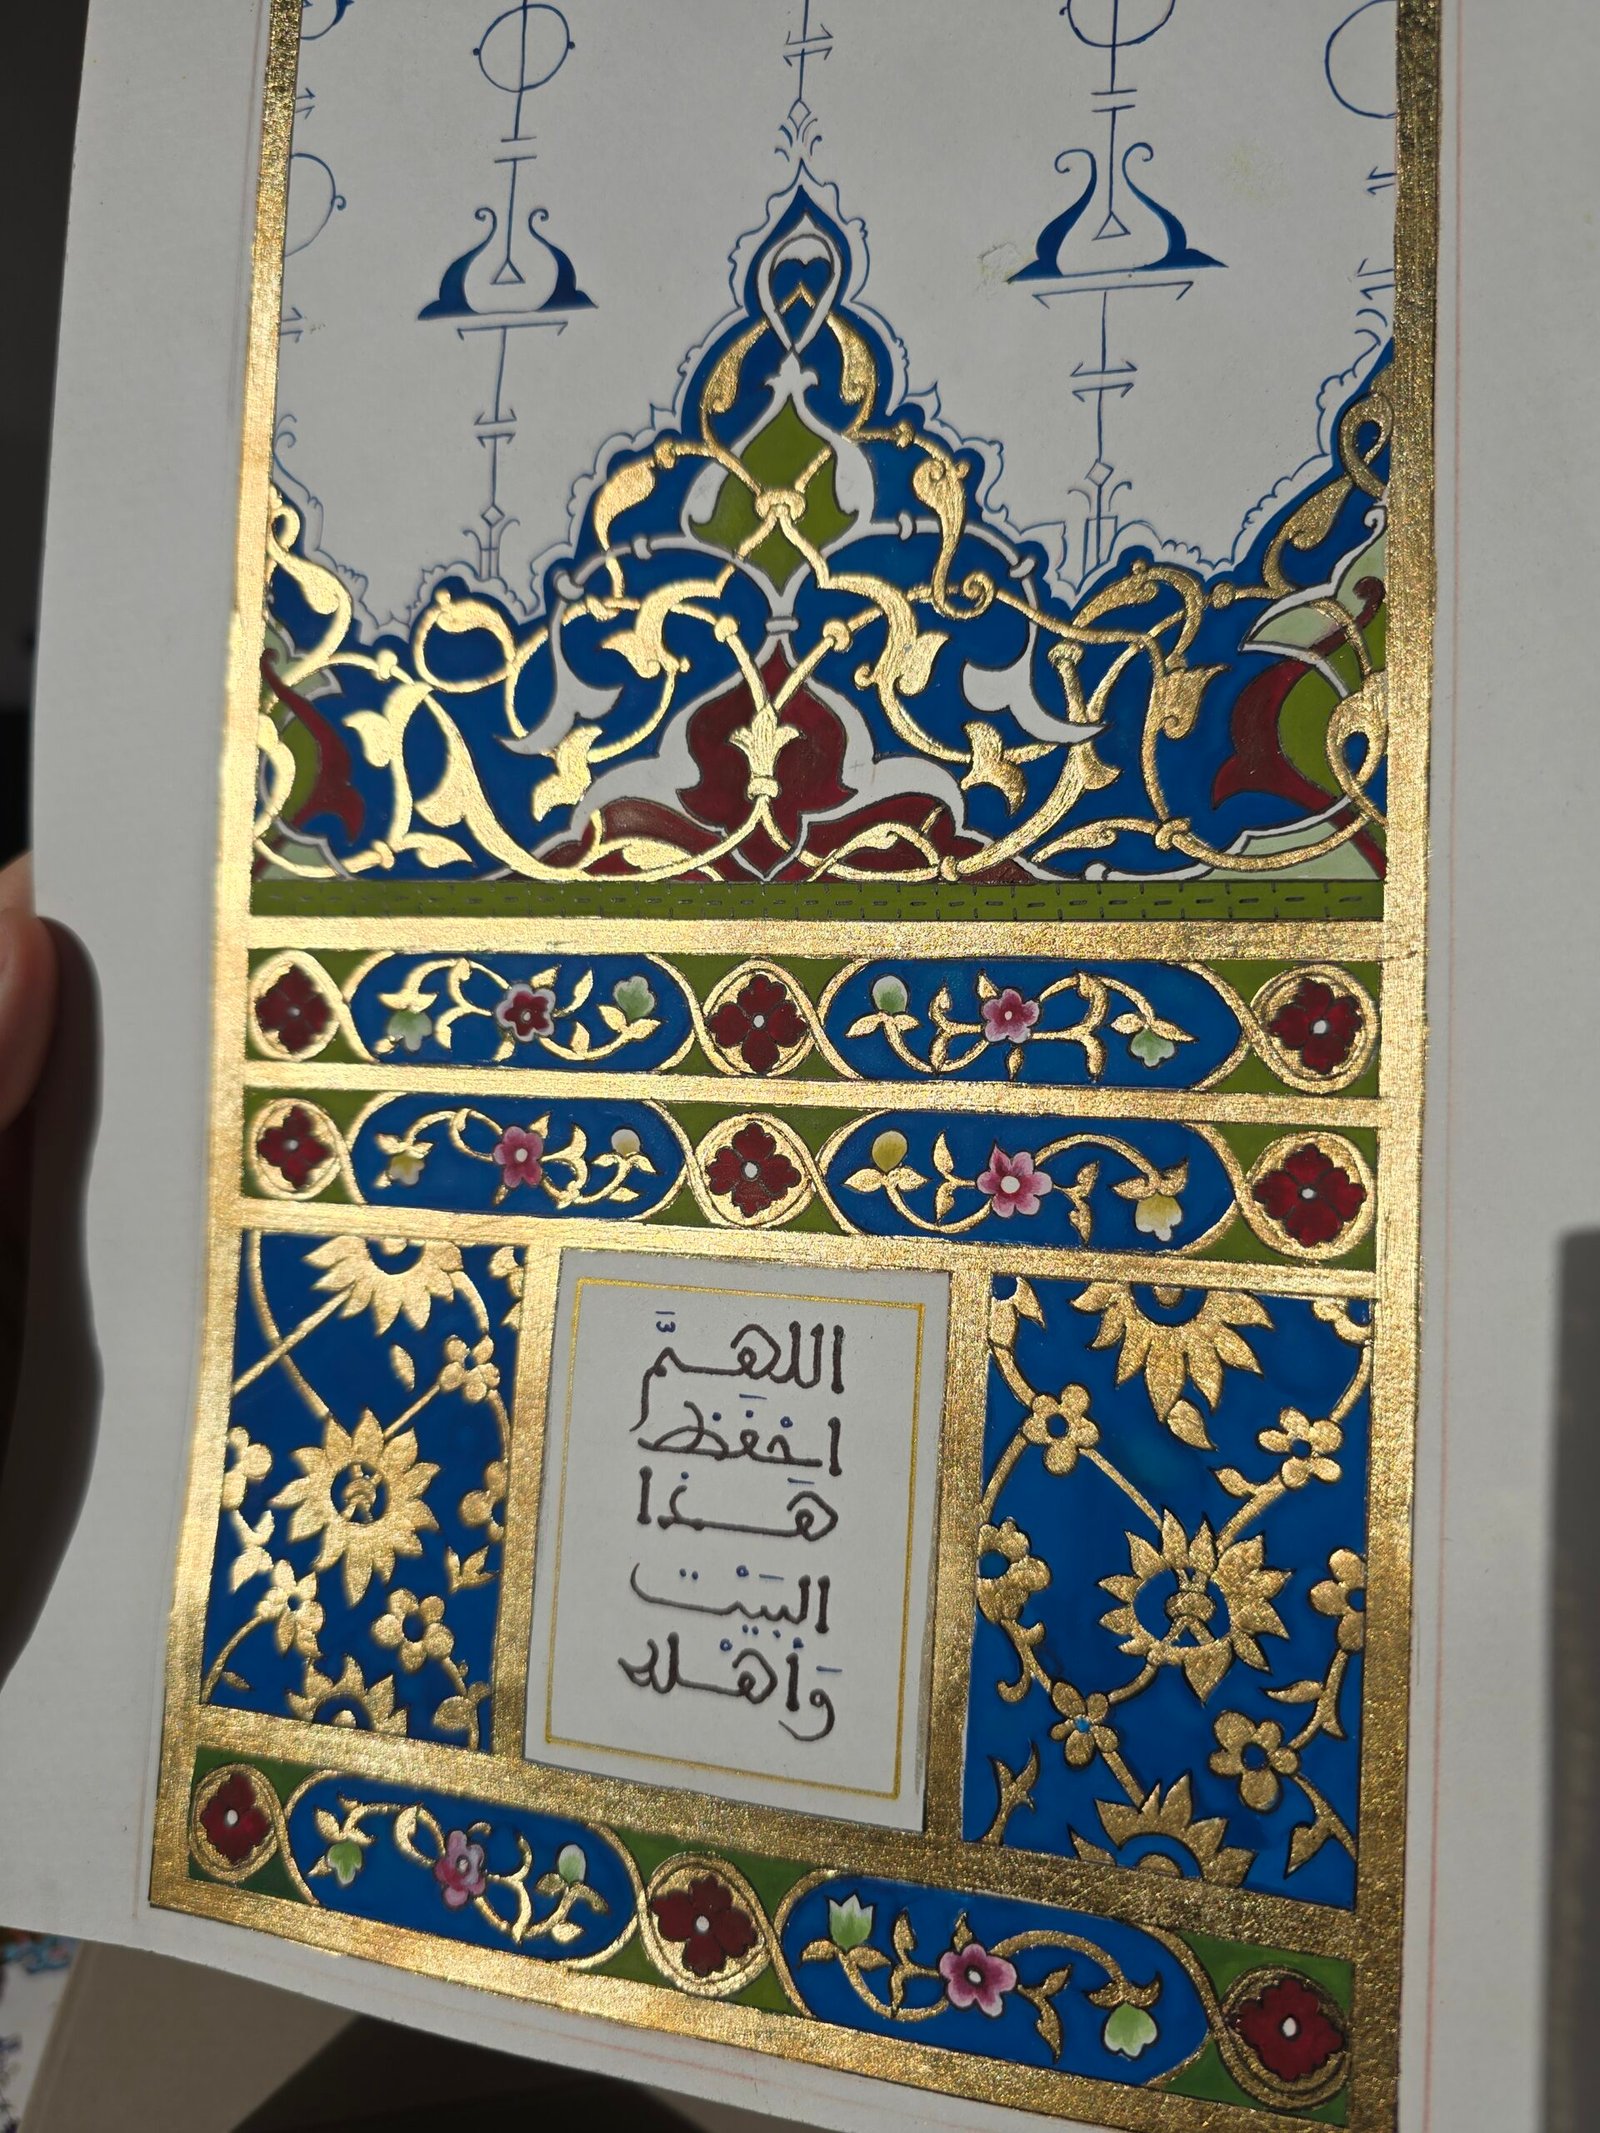 اللهمَّ
احْفَظ
هَذا
البَيْت
وَأهْله